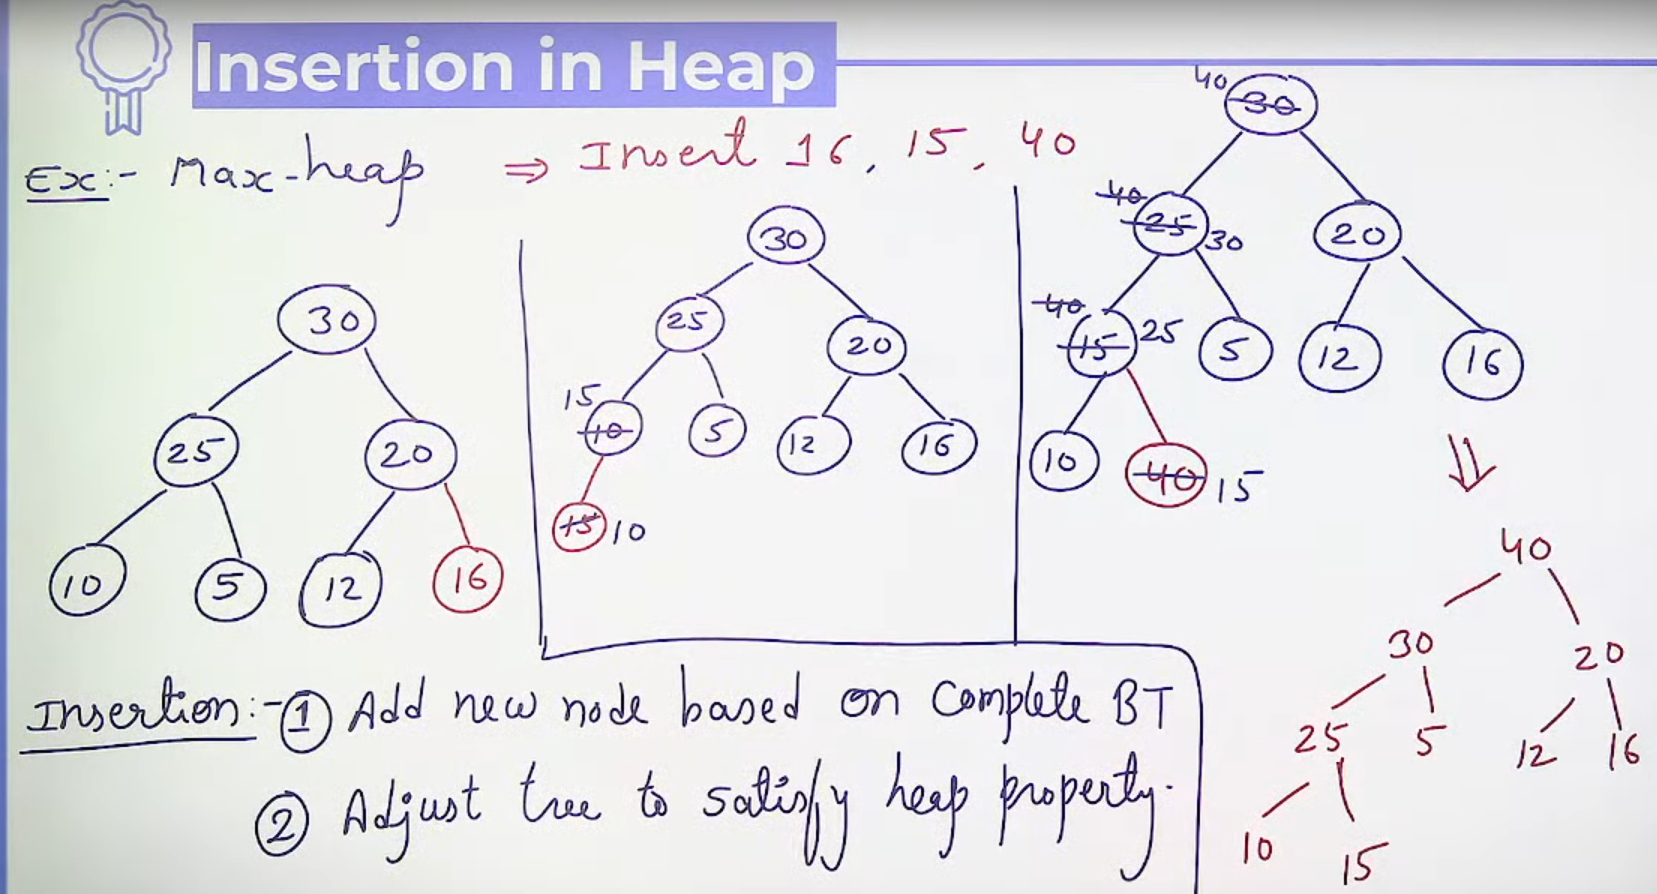 Insertion in Heap
Ex:- Max-heap ⇒ Insert 16, 15, 40
30
25 20
10 5 12 16
30
25 20
15 10 5 12 16
15 10
40 30
40 25 30 20
40 15 25 5 12 16
10 40 15
⇓
40
30 20
25 5 12 16
10 15
Insertion:- ① Add new node based on Complete BT
② Adjust tree to satisfy heap property.